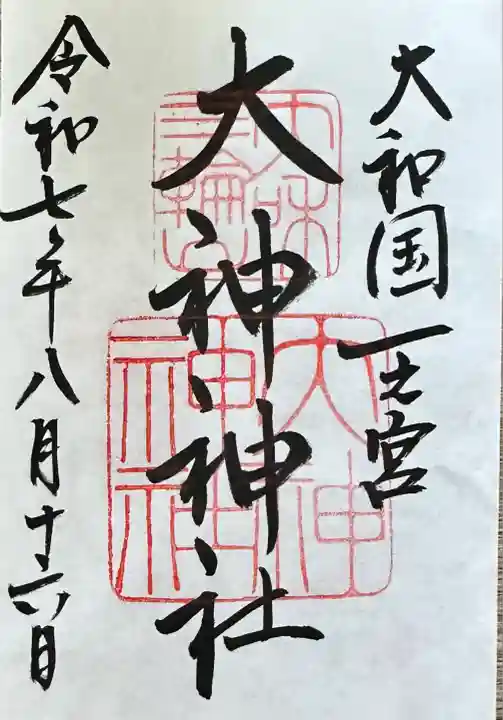 大和国一之宮
大神神社
令和七年八月十六日
三輪
大神
神社